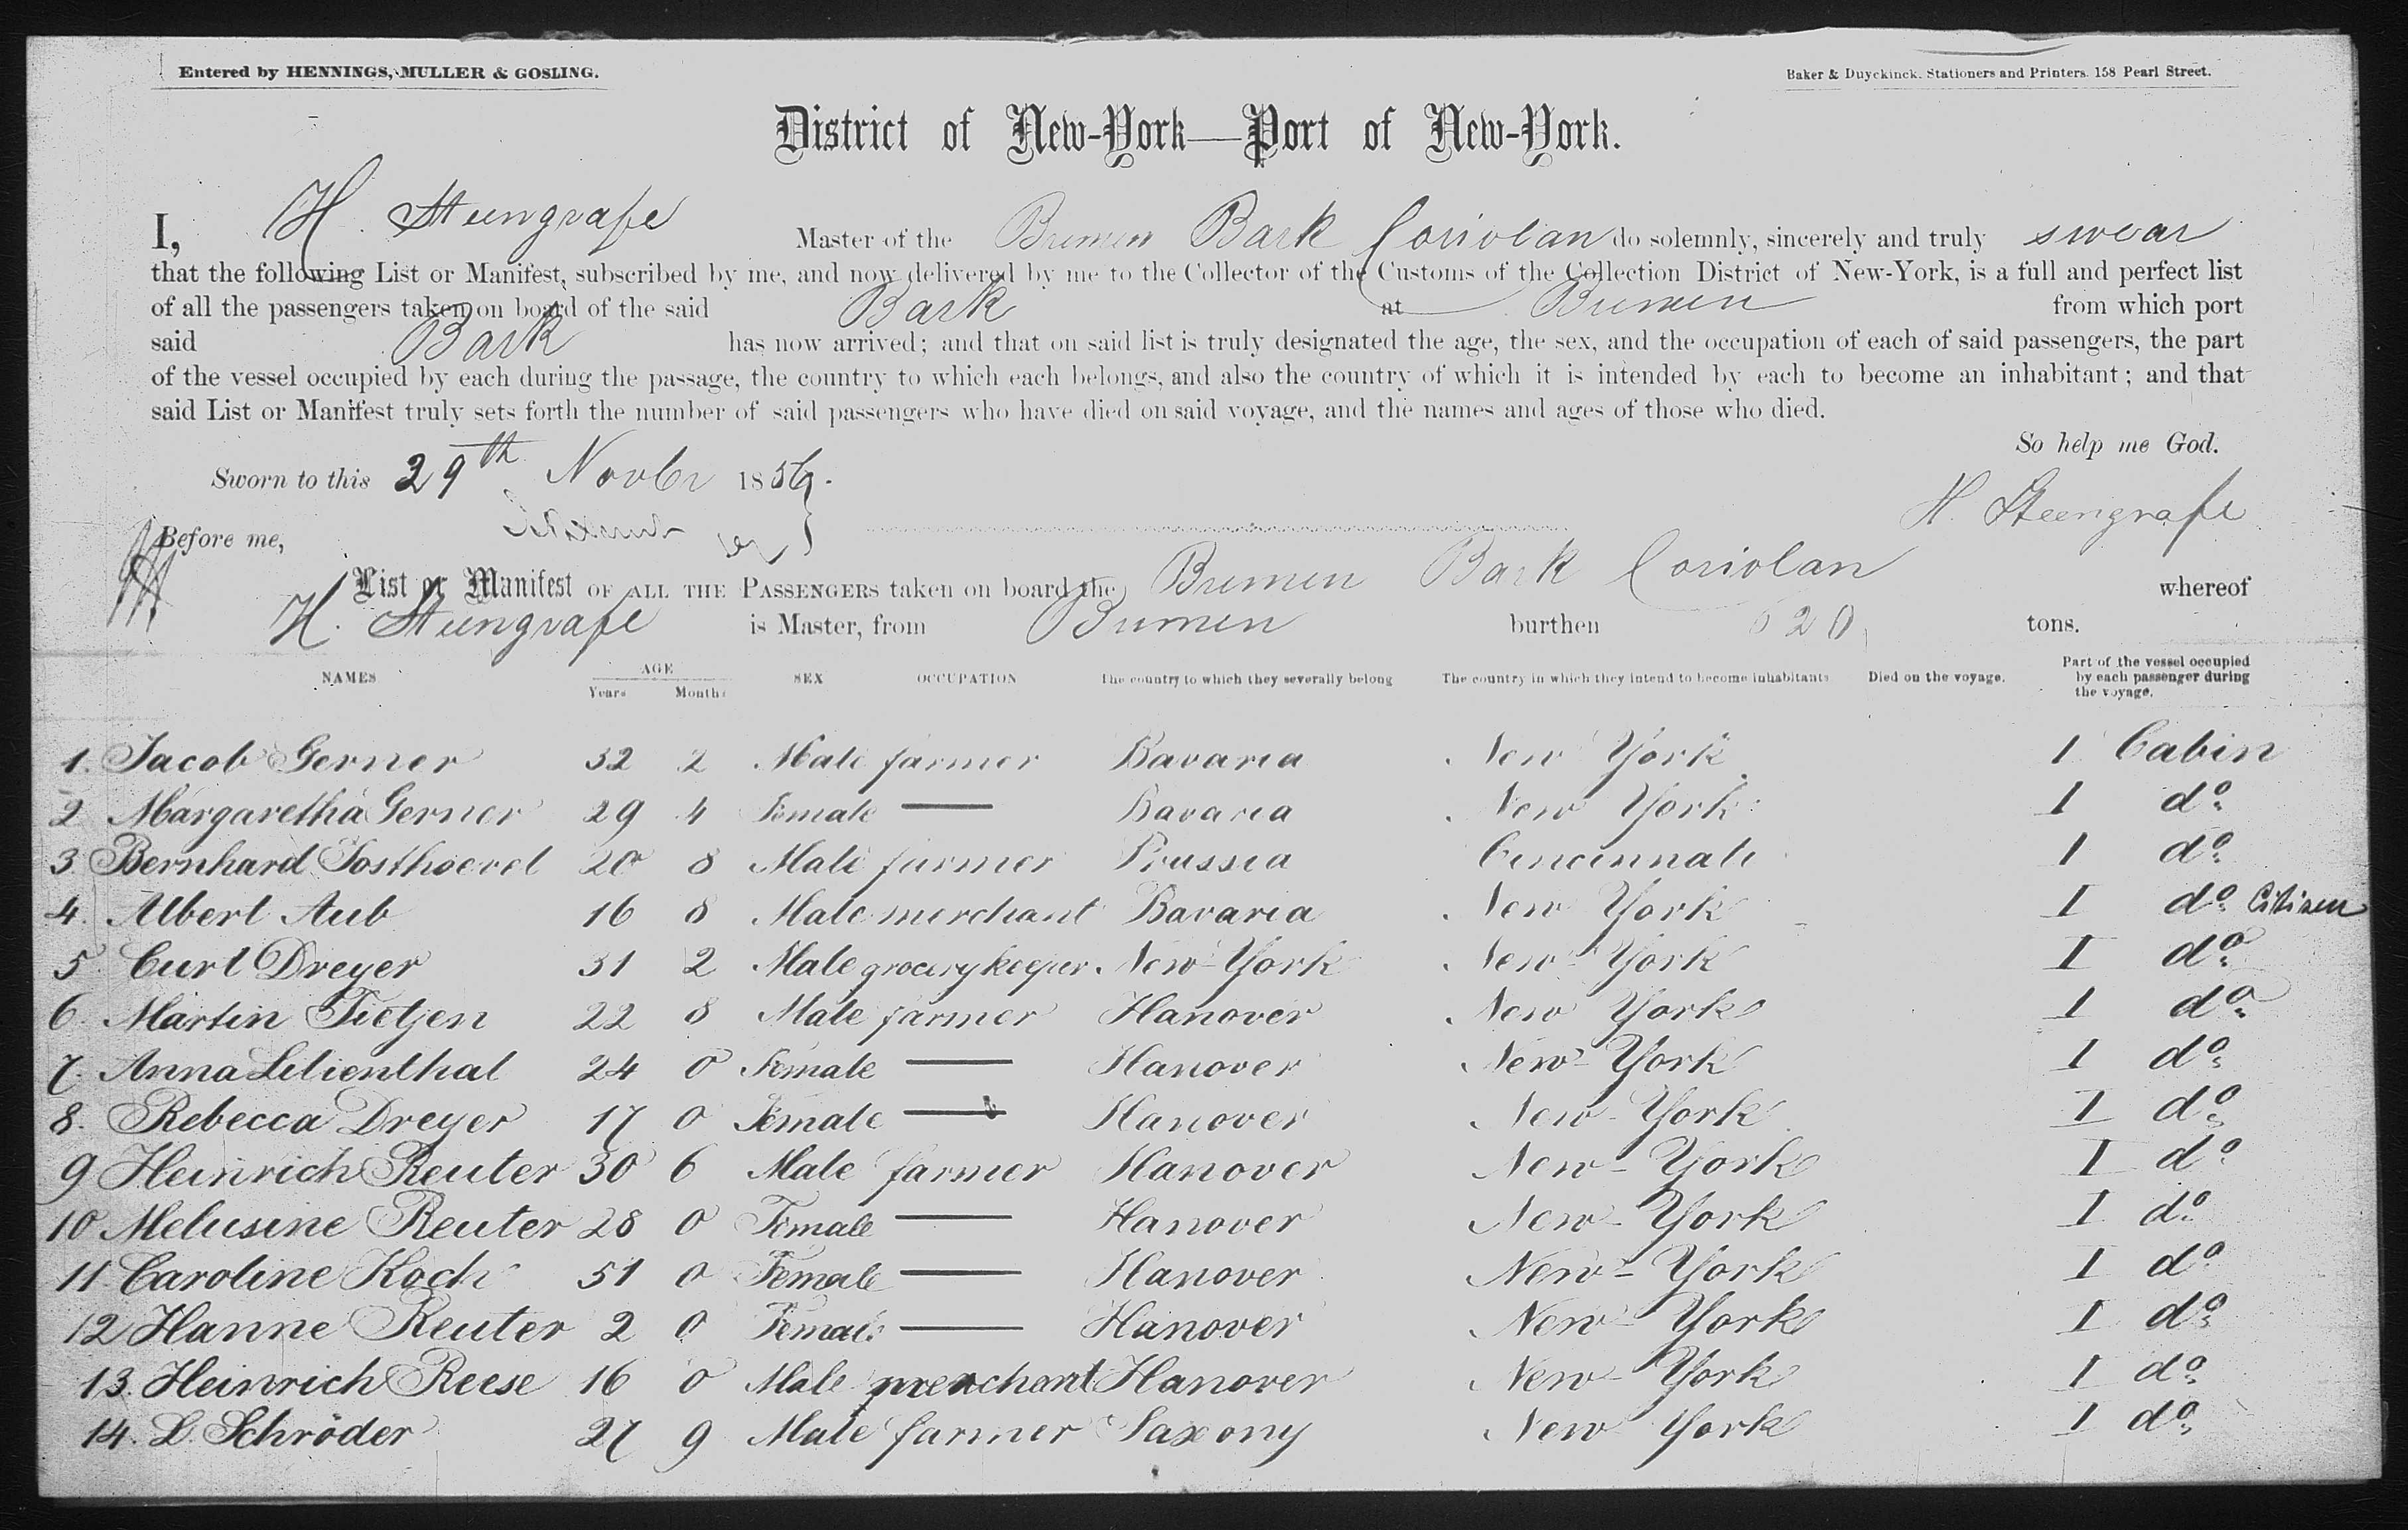 Entered by HENNINGS, MULLER & GOSLING.
Baker & Duyckinck, Stationers and Printers, 158 Pearl Street.
District of New-York—Port of New-York.
I, H. Steengrafe Master of the Bremen Bark Coriolan do solemnly, sincerely and truly swear
that the following List or Manifest, subscribed by me, and now delivered by me to the Collector of the Customs of the Collection District of New-York, is a full and perfect list
of all the passengers taken on board of the said Bark at Bremen from which port
said Bark has now arrived; and that on said list is truly designated the age, the sex, and the occupation of each of said passengers, the part
of the vessel occupied by each during the passage, the country to which each belongs, and also the country of which it is intended by each to become an inhabitant; and that
said List or Manifest truly sets forth the number of said passengers who have died on said voyage, and the names and ages of those who died.
So help me God.
Sworn to this 29th Novbr 1856.
H. Steengrafe
Before me,
List or Manifest OF ALL THE PASSENGERS taken on board the Bremen Bark Coriolan whereof
H. Steengrafe is Master, from Bremen burthen 620 tons.
NAMES AGE Years Months SEX OCCUPATION The country to which they severally belong The country in which they intend to become inhabitants Died on the voyage. Part of the vessel occupied by each passenger during the voyage.
1. Jacob Gerner 32 2 Male farmer Bavaria New York 1 Cabin
2 Margaretha Gerner 29 4 Female — Bavaria New York 1 do
3 Bernhard Sosthoevel 20 8 Male farmer Prussia Cincinnati 1 do
4. Albert Aub 16 8 Male merchant Bavaria New York 1 do Citizen
5 Curt Dreyer 31 2 Male grocerykeeper New-York New-York 1 do
6. Martin Tietjen 22 8 Male farmer Hanover New York 1 do
7. Anna Lilienthal 24 0 Female — Hanover New-York 1 do
8. Rebecca Dreyer 17 0 Female — Hanover New-York 1 do
9 Heinrich Reuter 30 6 Male farmer Hanover New-York 1 do
10 Melusine Reuter 28 0 Female — Hanover New-York 1 do
11 Caroline Koch 51 0 Female — Hanover New-York 1 do
12 Hanne Reuter 2 0 Female — Hanover New-York 1 do
13. Heinrich Reese 16 0 Male merchant Hanover New-York 1 do
14. L. Schröder 27 9 Male farmer Saxony New York 1 do